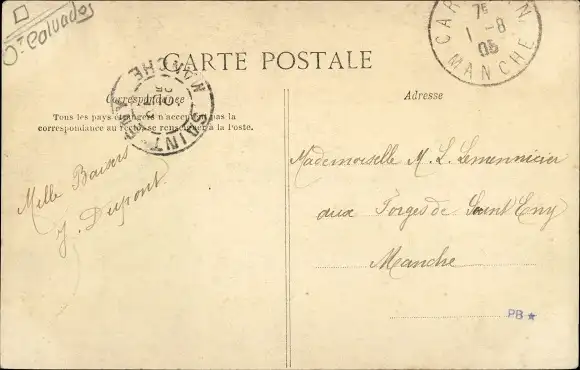 Dt Calvados
CARTE POSTALE
Correspondance
Tous les pays étrangers n'acceptent pas la
correspondance au recto, se renseigner à la Poste.
MANCHE
SAINT
Mille Baisers
J. Dupont
7E
1 -8
05
MANCHE
Adresse
Mademoiselle M. L. Lemennicier
aux Forges de Saint Eny
Manche
PB★